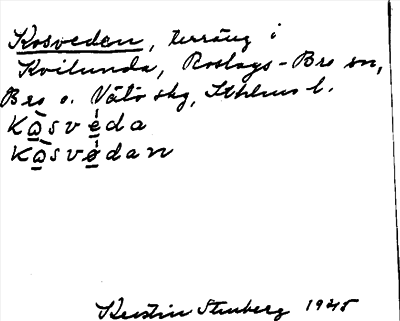 Kosvedan, terräng i
Kvilunda, Roslags-Bro sn,
Bro o. Vätö skg, Sthlms l.
kåsveda
kåsvedan
Kerstin Stenberg 1945